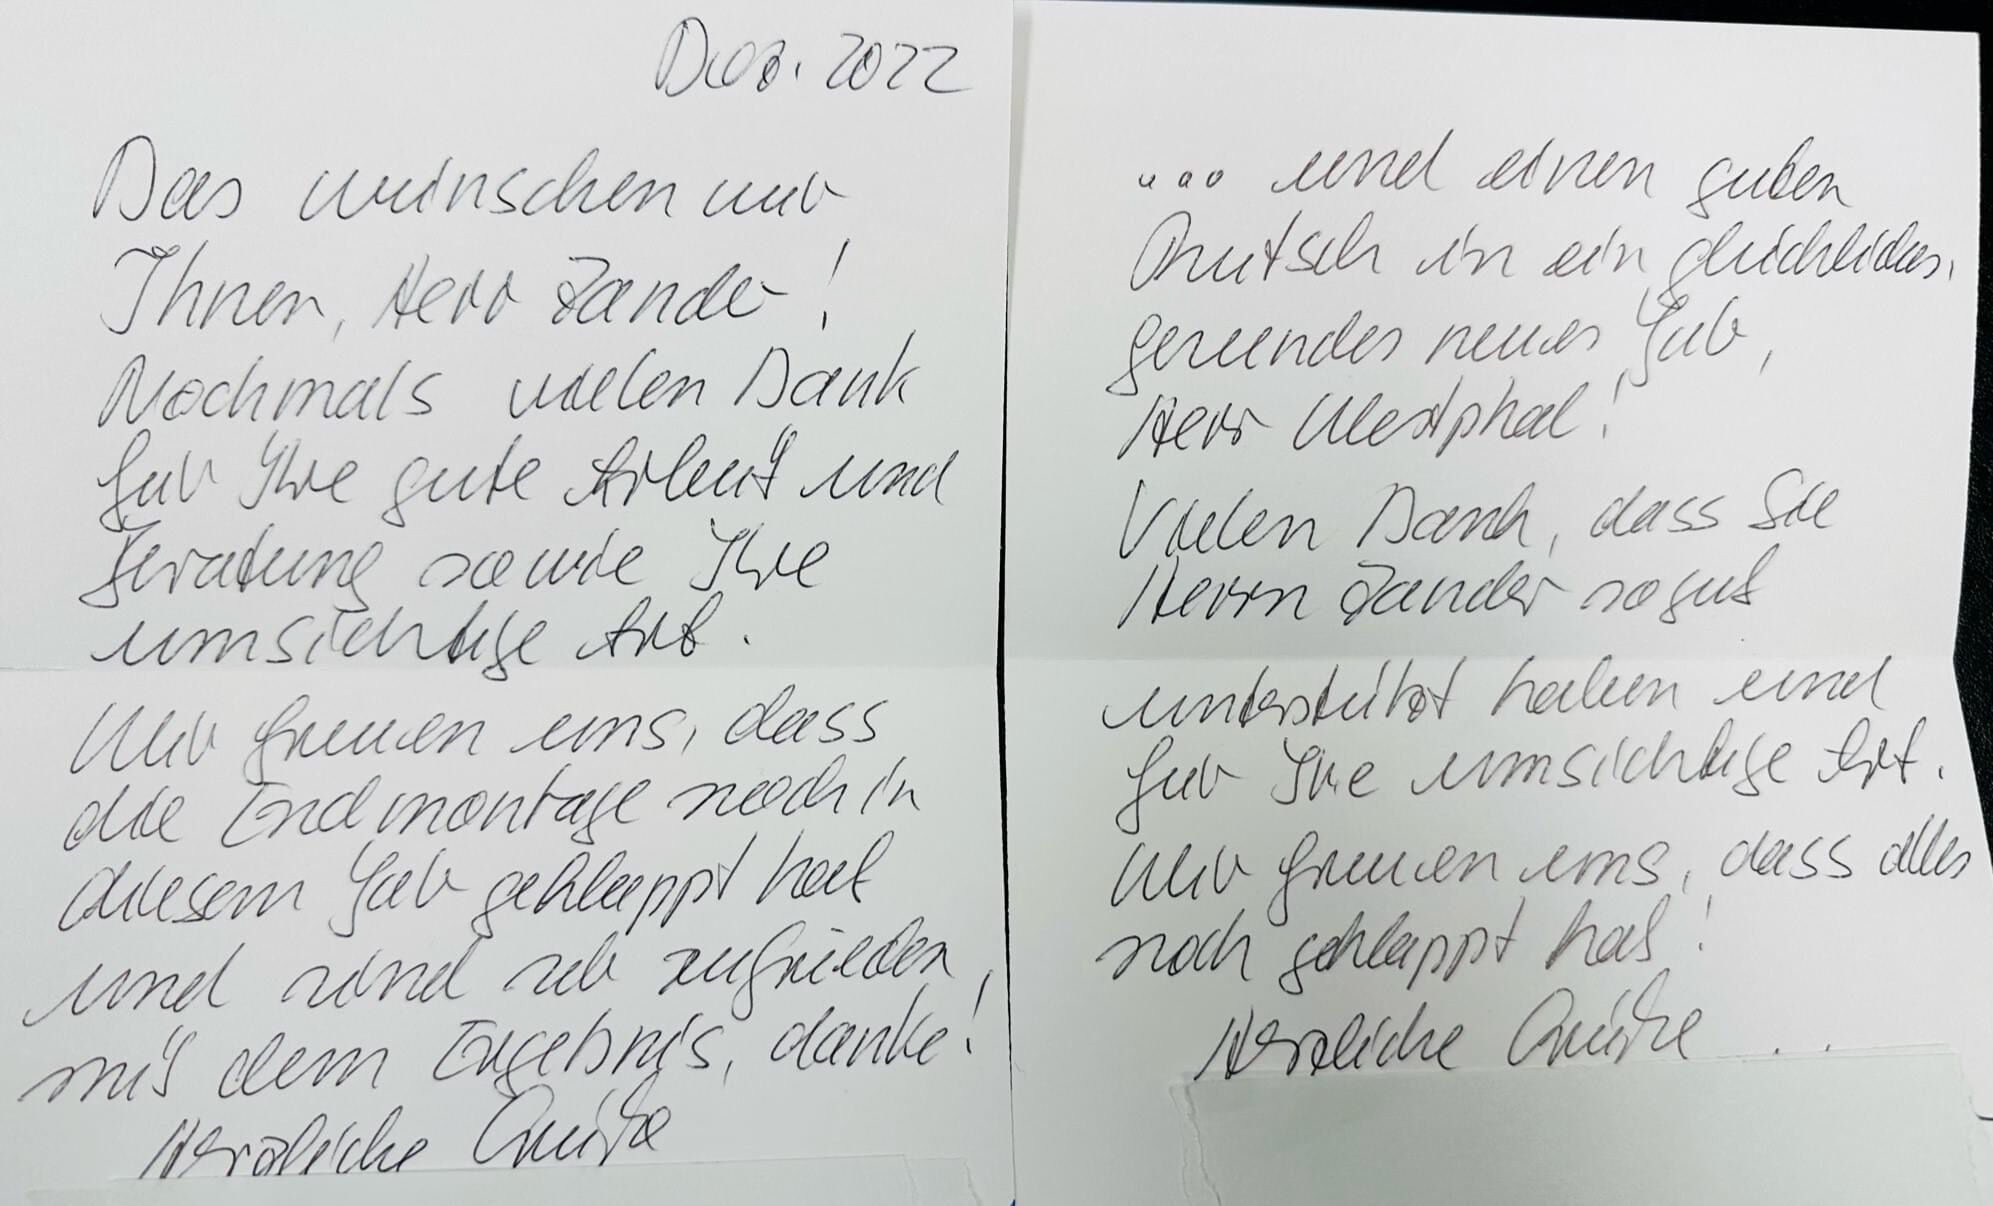 Dez. 2022
Das wünschen wir
Ihnen, Herr Zander!
Nochmals vielen Dank
für Ihre gute Arbeit und
Beratung sowie Ihre
umsichtige Art.
Wir freuen uns, dass
die Endmontage noch in
diesem Jahr geklappt hat
und sind sehr zufrieden
mit dem Ergebnis, danke!
Herzliche Grüße
... und einen guten
Rutsch in ein glückliches,
gesundes neues Jahr,
Herr Westphal!
Vielen Dank, dass Sie
Herrn Zander so gut
unterstützt haben und
für Ihre umsichtige Art.
Wir freuen uns, dass alles
noch geklappt hat!
Herzliche Grüße